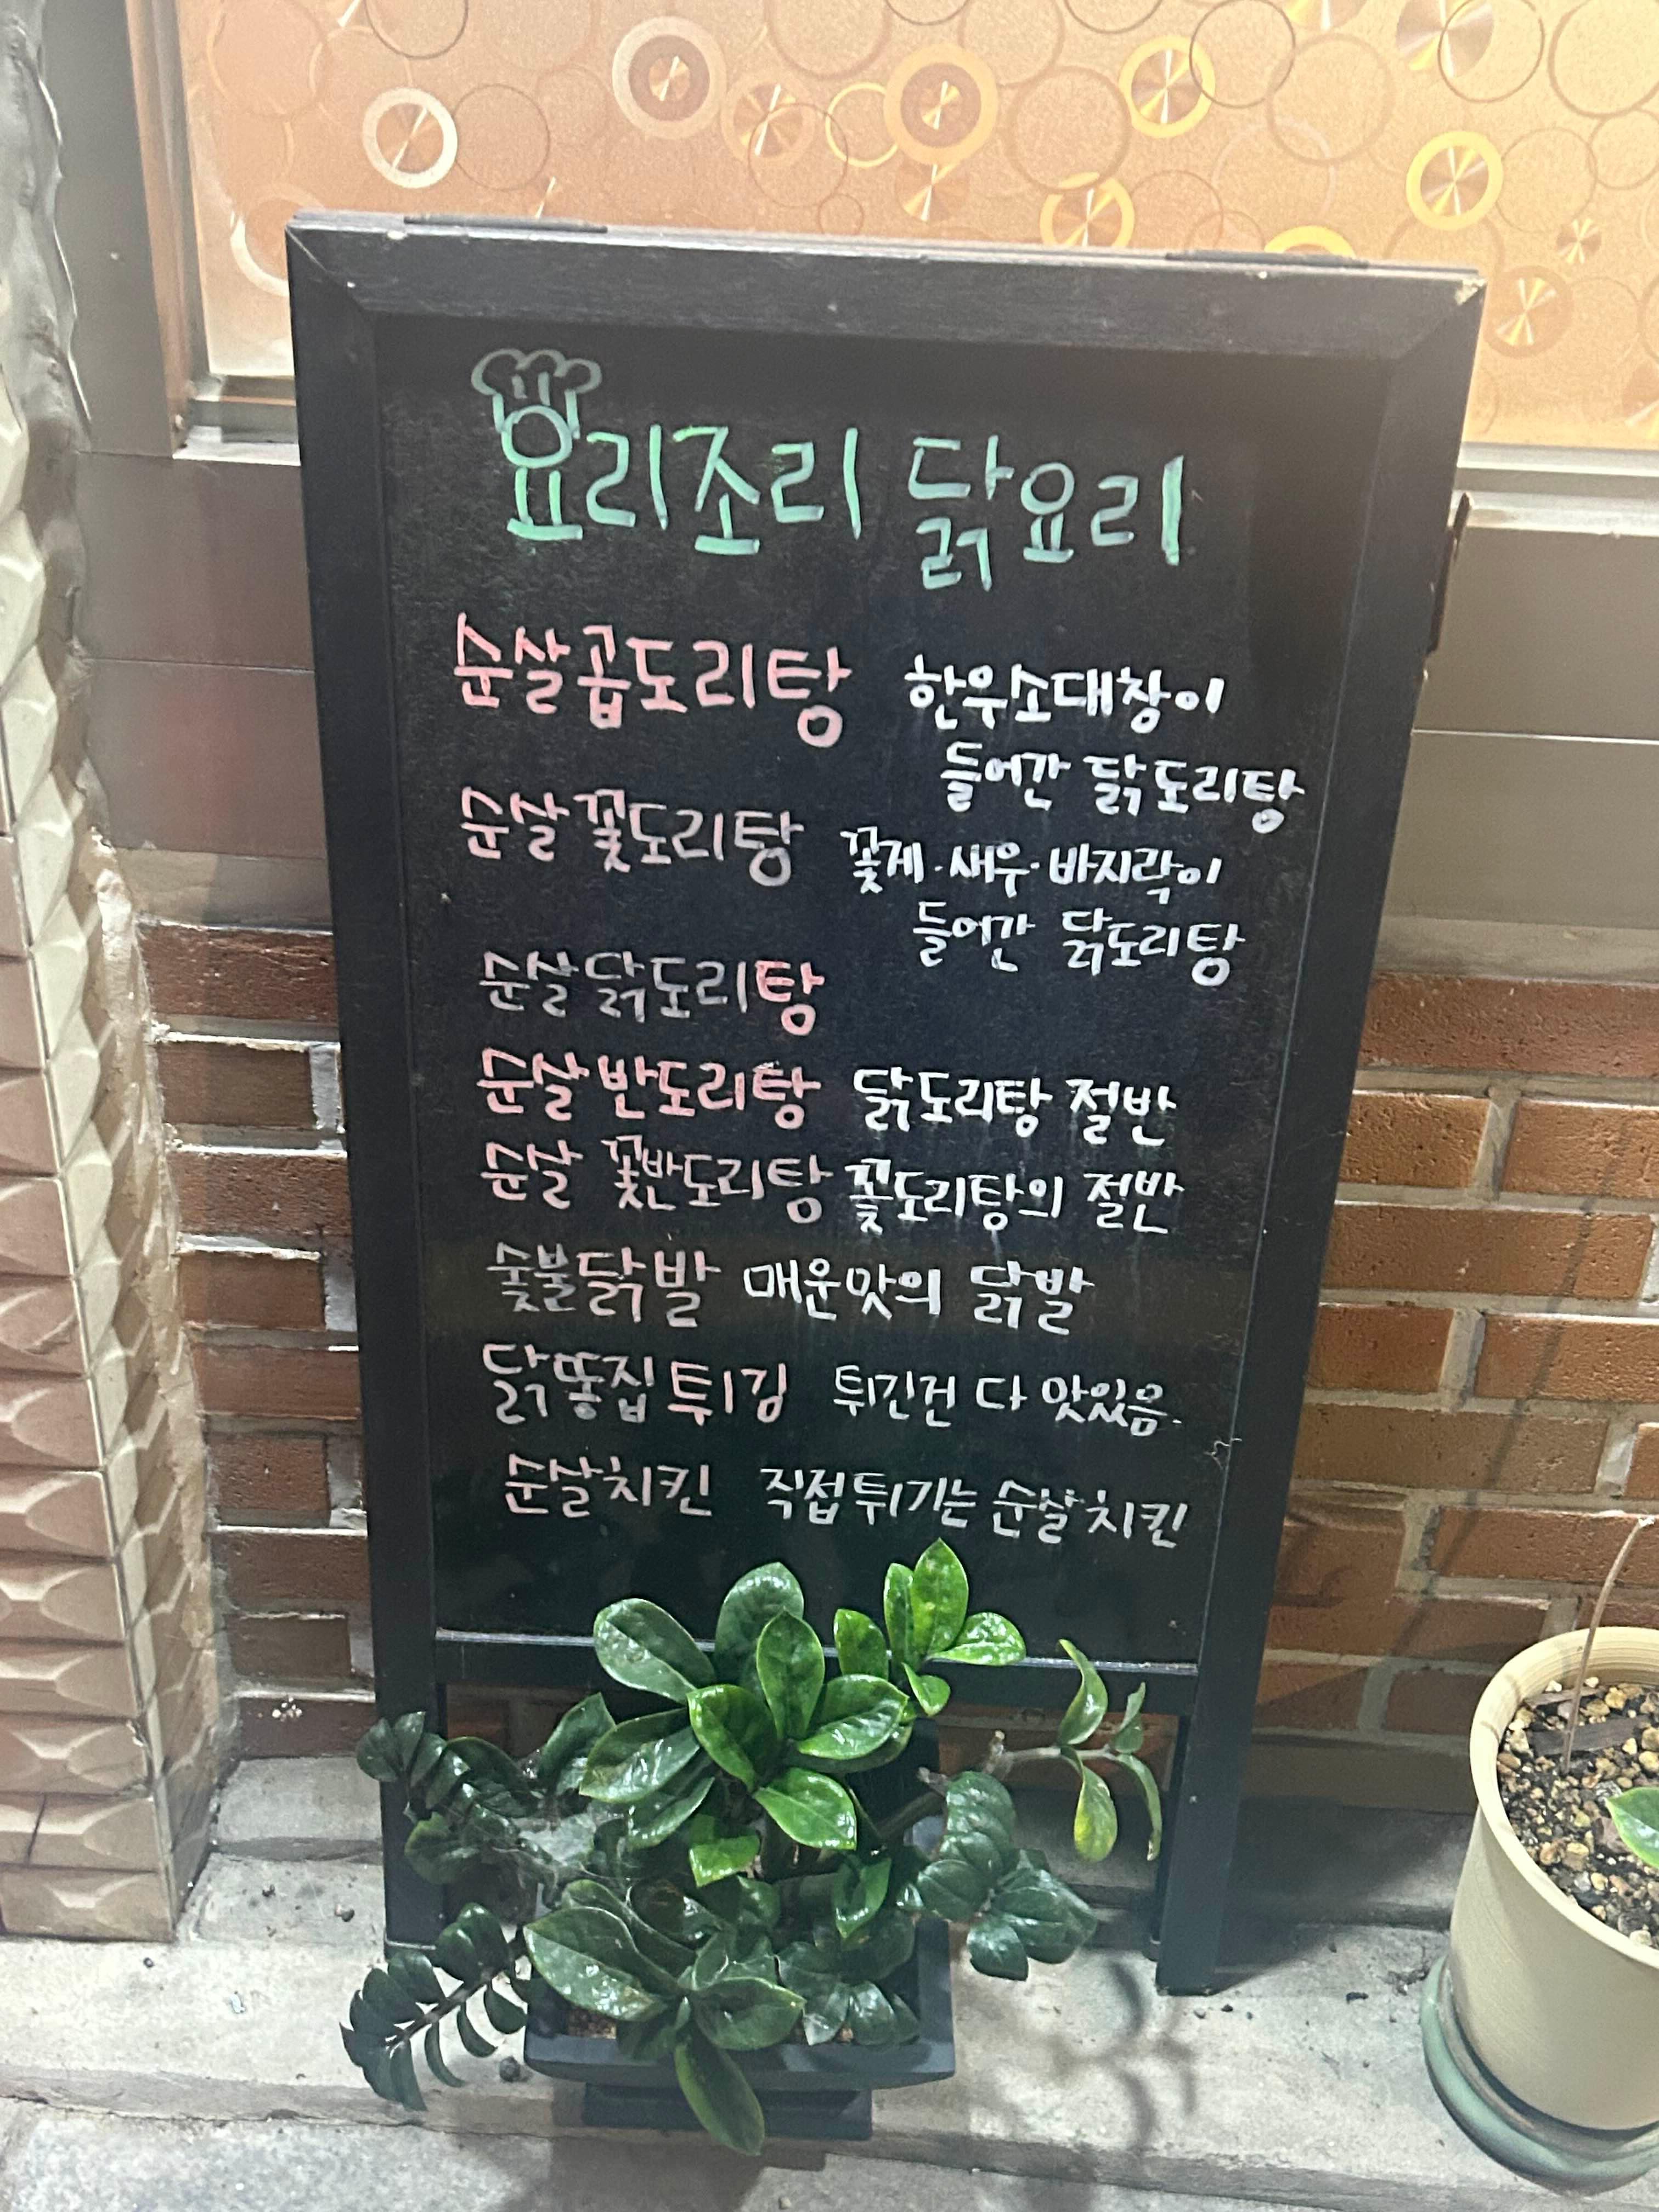 요리조리 닭요리
순살곱도리탕 한우소대창이
들어간 닭도리탕
순살꽃도리탕 꽃게·새우·바지락이
들어간 닭도리탕
순살닭도리탕
순살반도리탕 닭도리탕 절반
순살 꽃반도리탕 꽃도리탕의 절반
숯불닭발 매운맛의 닭발
닭똥집튀김 튀긴건 다 맛있음.
순살치킨 직접튀기는 순살치킨